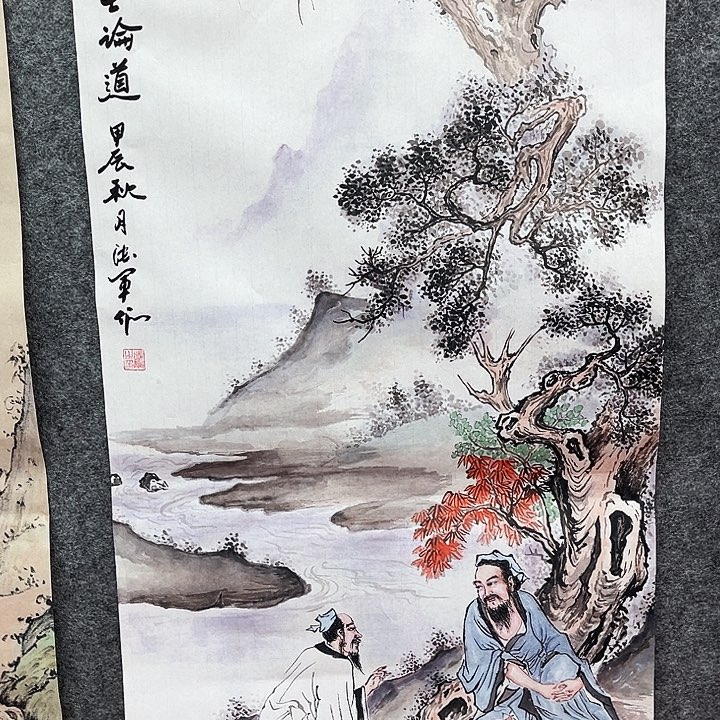 論道
甲辰秋月法軍作